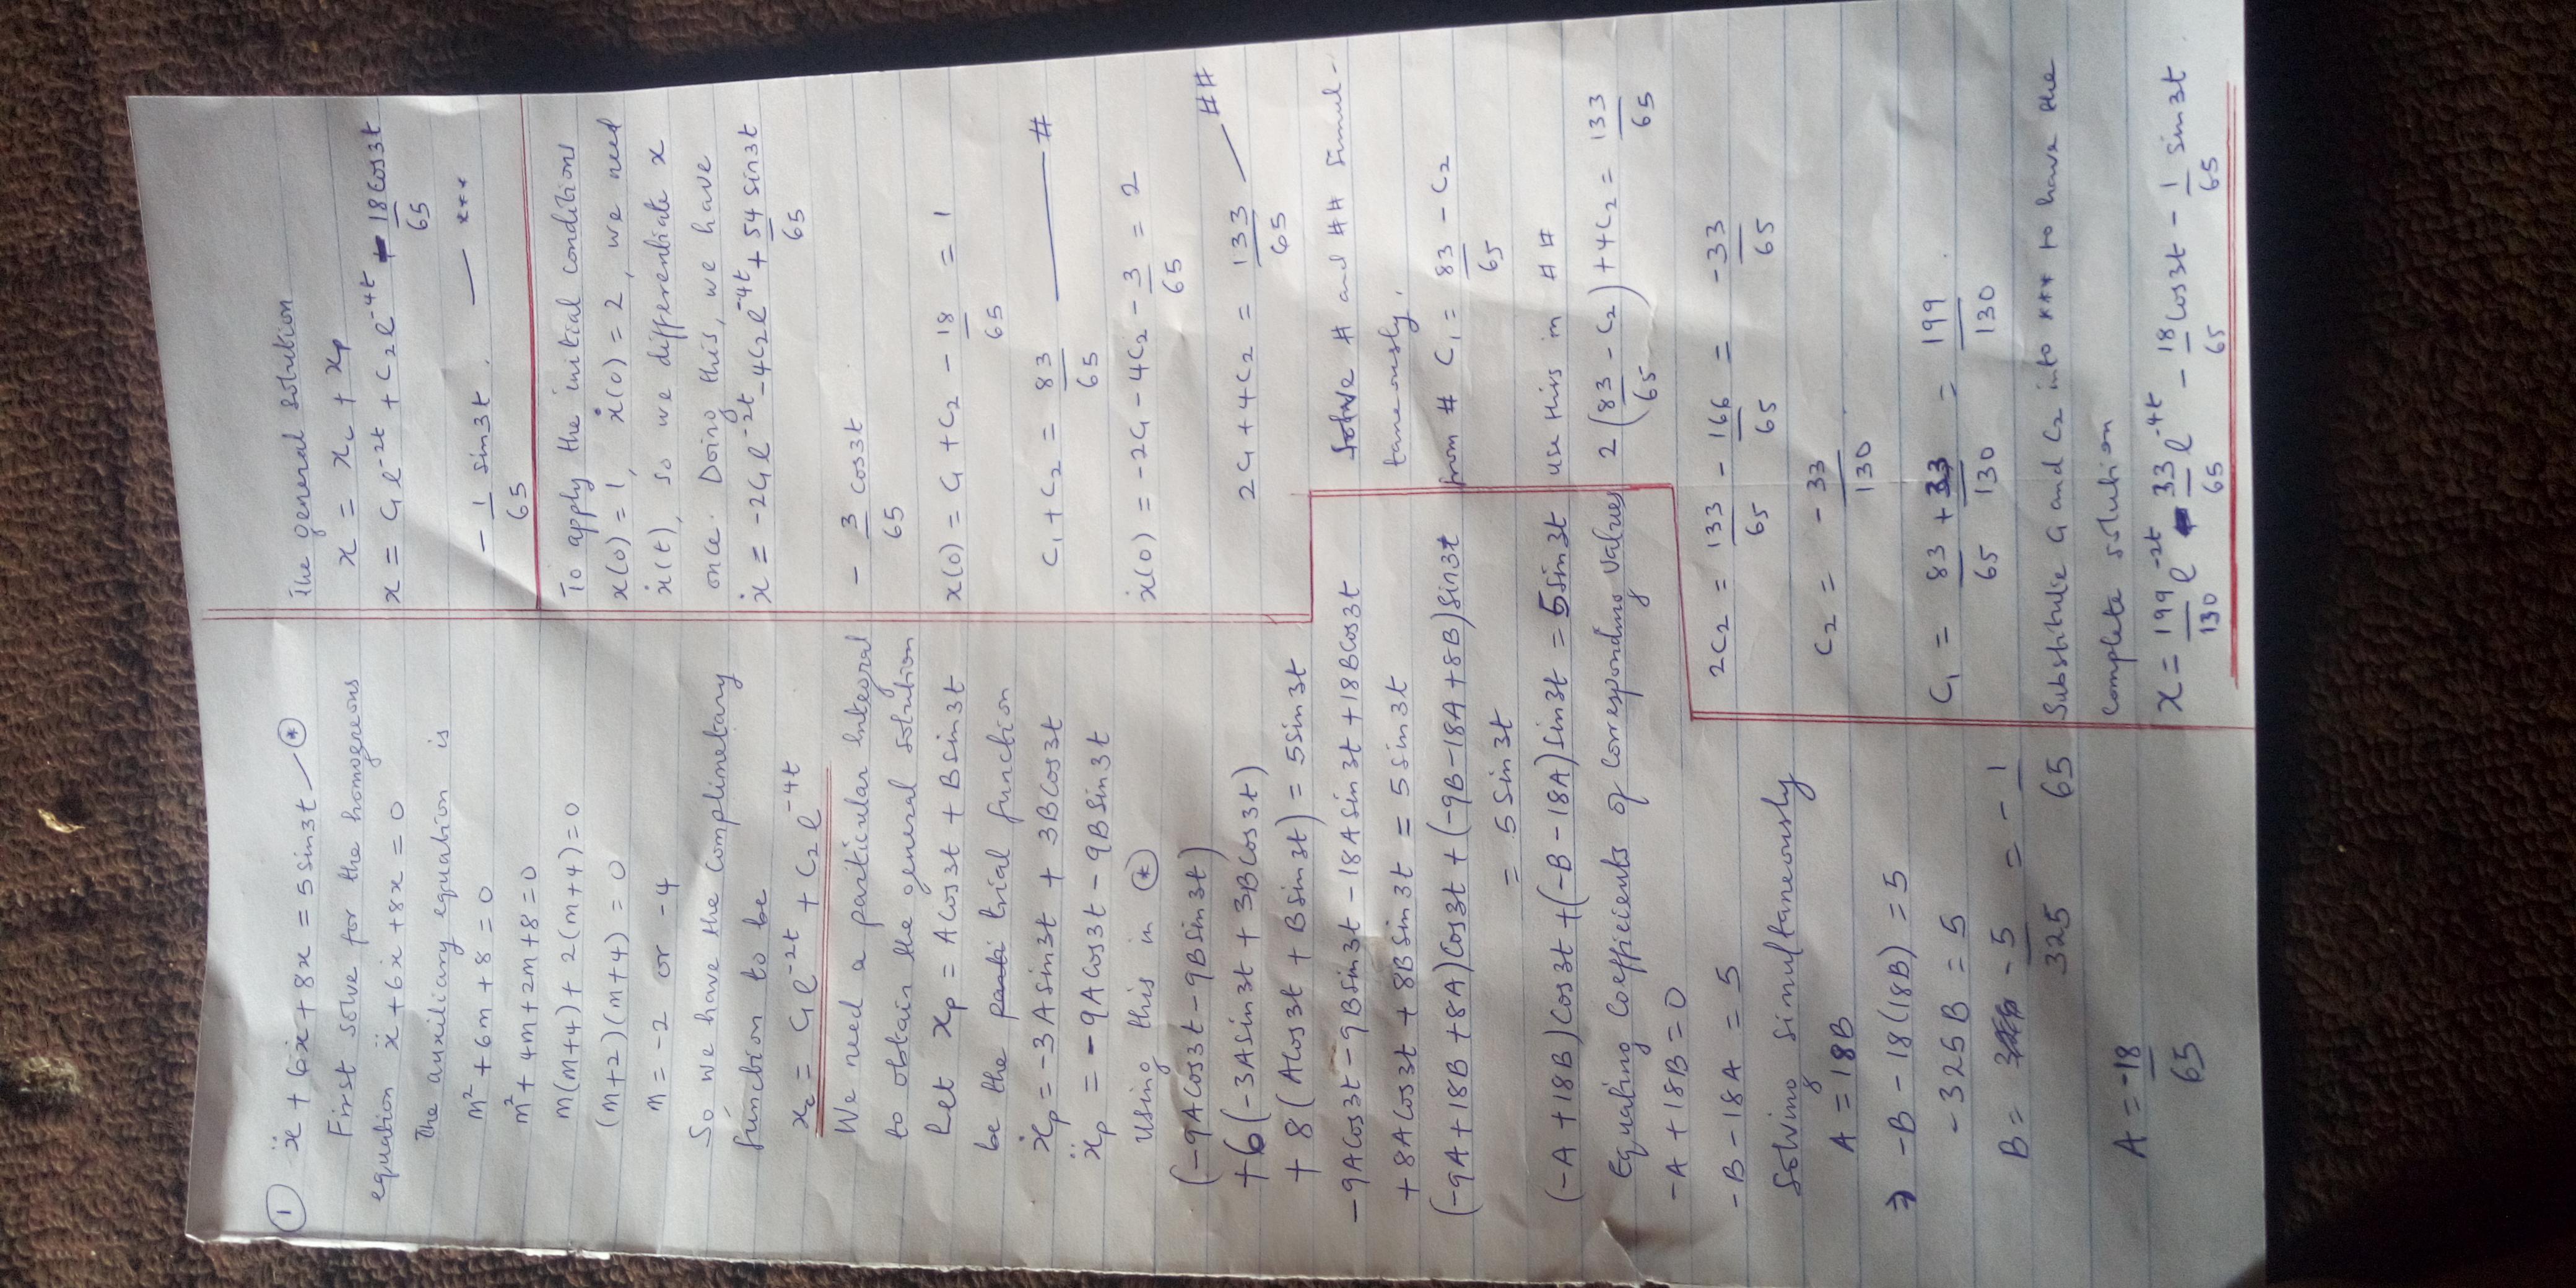 ① ẍ + 6ẋ + 8x = 5sin3t — (*)
First solve for the homogeneous
equation ẍ + 6ẋ + 8x = 0
The auxiliary equation is
m² + 6m + 8 = 0
m² + 4m + 2m + 8 = 0
m(m+4) + 2(m+4) = 0
(m+2)(m+4) = 0
m = -2 or -4
So we have the complimetary
function to be
x_c = C₁e^{-2t} + C₂e^{-4t}
We need a particular integral
to obtain the general solution
Let x_p = Acos3t + Bsin3t
be the trial function
ẋ_p = -3Asin3t + 3Bcos3t
ẍ_p = -9Acos3t - 9Bsin3t
Using this in (*)
(-9Acos3t - 9Bsin3t)
+6(-3Asin3t + 3Bcos3t)
+8(Acos3t + Bsin3t) = 5sin3t
-9Acos3t - 9Bsin3t - 18Asin3t + 18Bcos3t
+8Acos3t + 8Bsin3t = 5sin3t
(-9A + 18B + 8A)cos3t + (-9B - 18A + 8B)sin3t
= 5sin3t
(-A + 18B)cos3t + (-B - 18A)sin3t = 5sin3t
Equating coefficients of corresponding values
-A + 18B = 0
-B - 18A = 5
Solving simultaneously
A = 18B
⇒ -B - 18(18B) = 5
-325B = 5
B = -5/325 = -1/65
A = -18/65
The general solution
x = x_c + x_p
x = C₁e^{-2t} + C₂e^{-4t} - 18/65 cos3t
- 1/65 sin3t. — ***
To apply the initial conditions
x(0) = 1, ẋ(0) = 2, we need
ẋ(t), so we differentiate x
once. Doing this, we have
ẋ = -2C₁e^{-2t} - 4C₂e^{-4t} + 54/65 sin3t
- 3/65 cos3t
x(0) = C₁ + C₂ - 18/65 = 1
C₁ + C₂ = 83/65 — #
ẋ(0) = -2C₁ - 4C₂ - 3/65 = 2
2C₁ + 4C₂ = 133/65 — ##
Solve # and ## simul-
taneously,
from # C₁ = 83/65 - C₂
use this in ##
2(83/65 - C₂) + 4C₂ = 133/65
2C₂ = 133/65 - 166/65 = -33/65
C₂ = -33/130.
C₁ = 83/65 + 33/130 = 199/130.
Substitute C₁ and C₂ into *** to have the
complete solution
x = 199/130 e^{-2t} - 33/65 e^{-4t} - 18/65 cos3t - 1/65 sin3t